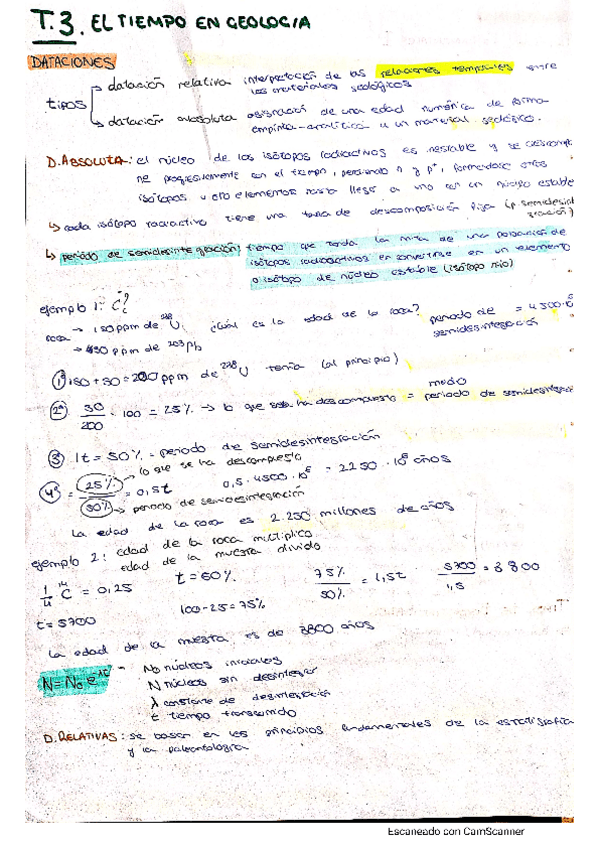 T.3. EL TIEMPO EN GEOLOGIA
DATACIONES
tipos
datación relativa interpretación de las relaciones temporales entre
los materiales geológicos
datación absoluta asignación de una edad numérica de forma
empírica-analítica a un material geológico.
D. ABSOLUTA: el núcleo de los isótopos radiactivos es inestable y se descompo
ne progresivamente en el tiempo, perdiendo n y p+, formandose otros
isótopos u otro elementos hasta llegar a uno en un núcleo estable
↳ cada isótopo radiactivo tiene una tasa de descomposición fija (p. semidesint
gración)
↳ periodo de semidesintegración: tiempo que tarda la mitad de una población de
isótopos radiactivos en convertirse en un elemento
o isótopo de núcleo estable (isótopo hijo)
ejemplo 1: ¿?
roca → 150 ppm de 238 U ¿Cuál es la edad de la roca? periodo de semidesintegración = 4500·10⁶
→ 50 ppm de 203 pb
1º 150 + 50 = 200 ppm de 238 U tenía (al principio)
2º 50/200 · 100 = 25% → lo que se ha descompuesto = periodo de semidesintegr
medio
3 1t = 50% = periodo de semidesintegración
4º = 25% → lo que se ha descompuesto
50% → periodo de semidesintegración
= 0,5t 0,5 · 4500 · 10⁶ = 2250 · 10⁶ años
la edad de la roca es 2.250 millones de años
ejemplo 2: edad de la roca multiplico
edad de la muestra divido
1/4 14 C = 0,25 t = 60% 75%/50% = 1,5t 5700/1,5 = 3800
t = 5700 100-25 = 75%
la edad de la muestra es de 3800 años
N = N₀ e^λt - N₀ núcleos iniciales
N núcleos sin desintegrar
λ constante de desintegración
t tiempo transcurrido
D. RELATIVAS: se basan en los principios fundamentales de la estratigrafía
y la paleontología
Escaneado con CamScanner